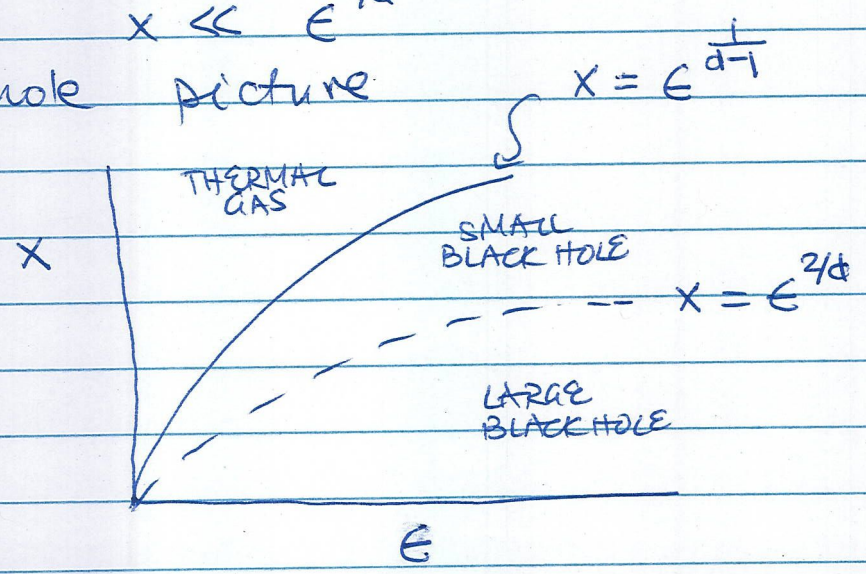 x << ϵ
picture
x = ϵ^{\frac{1}{d-1}}
THERMAL
GAS
SMALL
BLACK HOLE
X
x = ϵ^{2/d}
LARGE
BLACK HOLE
ϵ